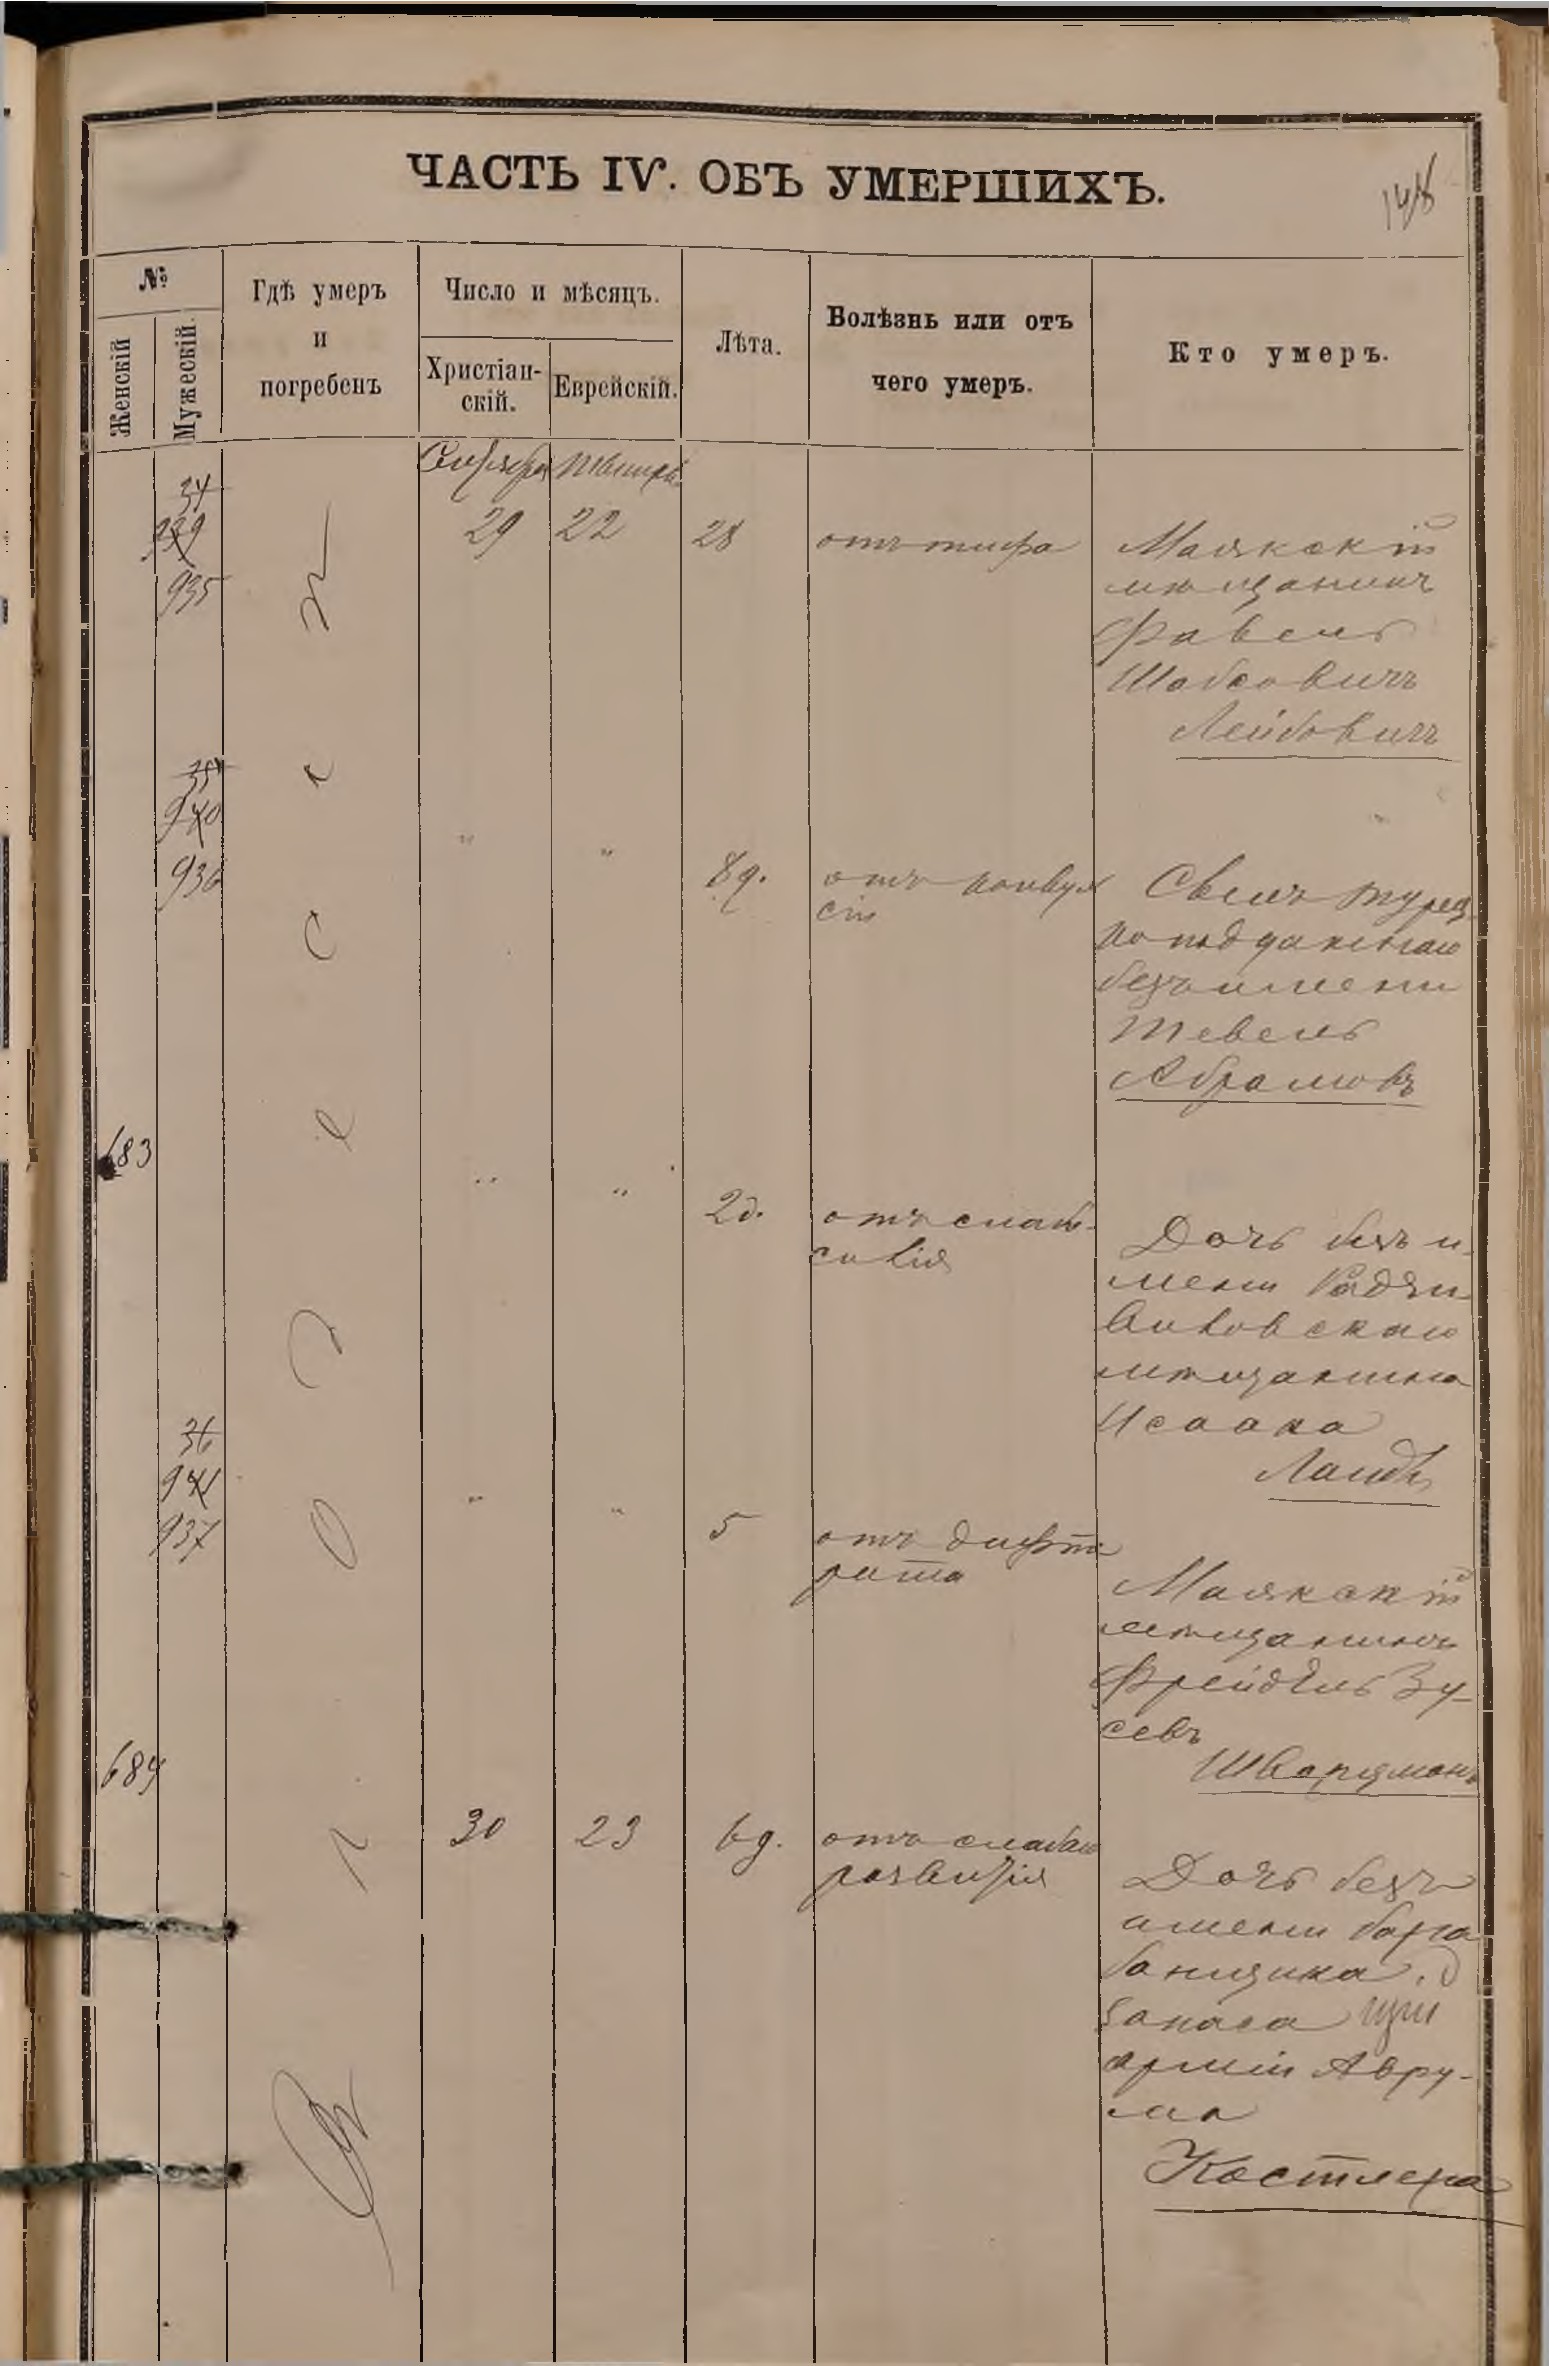 ЧАСТЬ IV. ОБЪ УМЕРШИХЪ.
148
№
Женскій
Мужескій
Гдѣ умеръ
и
погребенъ
Число и мѣсяцъ.
Христіан-
скій.
Еврейскій.
Лѣта.
Болѣзнь или отъ
чего умеръ.
Кто умеръ.
Сентября Тишри
34
939
935
29 22 28 отъ тифа
Маякскій
мѣщанинъ
Файвель
Шабсовичъ
Лейбовичъ
35
940
936
" " 8 д. отъ конвул
сіи
Сынъ турец-
ко подданнаго
безъ имени
Тевель
Абрамовъ
683
" " 2 д. отъ слаб-
сивія
Дочь безъ и-
мени Радзи
виловскаго
мѣщанина
Исаака
Ланда
36
941
937
" " 5 отъ дифте
рита
Маякскій
мѣщанинъ
Фрейдель Зу-
севъ
Шварцманъ
684
30 23 6 д. отъ слабаго
развитія
Дочь безъ
имени бара
банщика
запаса
арміи Авру-
ма
Костлера
Въ Одессѣ